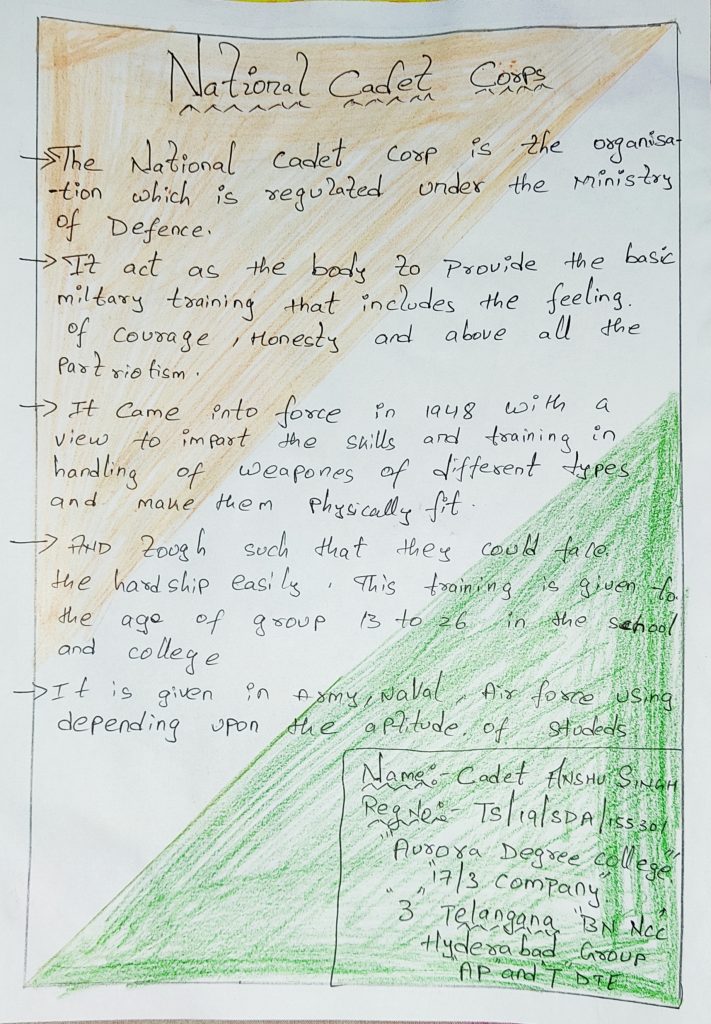 National Cadet Corps
→ The National Cadet Corp is the organisa-
-tion which is regulated under the Ministry
of Defence.
→ It act as the body to Provide the basic
miltary training that includes the feeling.
of courage, Honesty and above all the
Partriotism.
→ It Came into force in 1948 with a
view to impart the skills and training in
handling of weapones of different types
and make them Physically fit.
→ AND Tough such that they could face.
the hardship easily. This training is given to
the age of group 13 to 26 in the school
and college
→ It is given in Army, Naval, Air force using
depending upon the aptitude. of studeds
Name:- Cadet ANSHU SINGH
Reg No:- TS/19/SDA/155301
"Aurora Degree College"
"17/3 Company"
"3 Telangana BN NCC"
Hyderabad Group
AP and T DTE